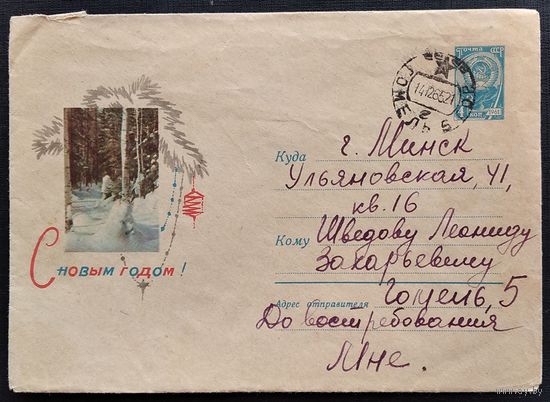 ПОЧТА СССР
4 КОП 1961
14126521
ГОМЕЛЬ
Куда г. Минск
Ульяновская, 41,
кв. 16
Кому Шведову Леониду
Захарьевичу
Адрес отправителя Гомель, 5
До востребования
Мне.
С НОВЫМ ГОДОМ!